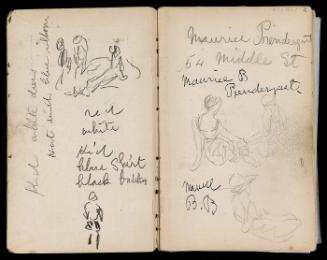 Plaid white dress
waist with blue ribbon
red
white
girl
blue skirt
black button
Maurice Prendergast
54 Middle St
Maurice B
Prendergast
B.B